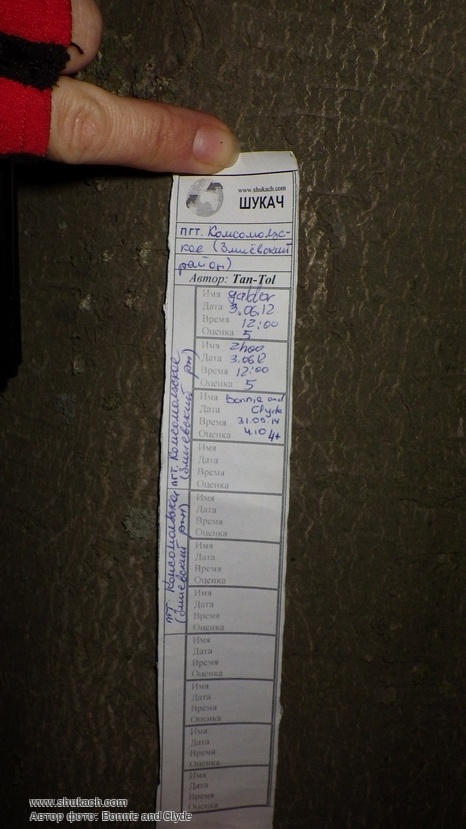 www.shukach.com
ШУКАЧ
пгт. Комсомольс-
кое (Змиёвский
район)
Автор: Tan-Tol
Имя gabor
Дата 3.06.12
Время 12:00
Оценка 5
Имя zhoo
Дата 3.06.12
Время 12:00
Оценка 5
Имя Bonnie and
Дата Clyde
Время 31.05.14
Оценка 4.10 4+
Имя
Дата
Время
Оценка
Имя
Дата
Время
Оценка
Имя
Дата
Время
Оценка
Имя
Дата
Время
Оценка
Имя
Дата
Время
Оценка
Имя
Дата
Время
Оценка
Имя
Дата
Время
Оценка
Имя
Дата
Время
Оценка
пгт. Комсомольское
(Змиевский р-н)
пгт Комсомольское
(Змиевский р-н)
www.shukach.com
Автор фото: Bonnie and Clyde